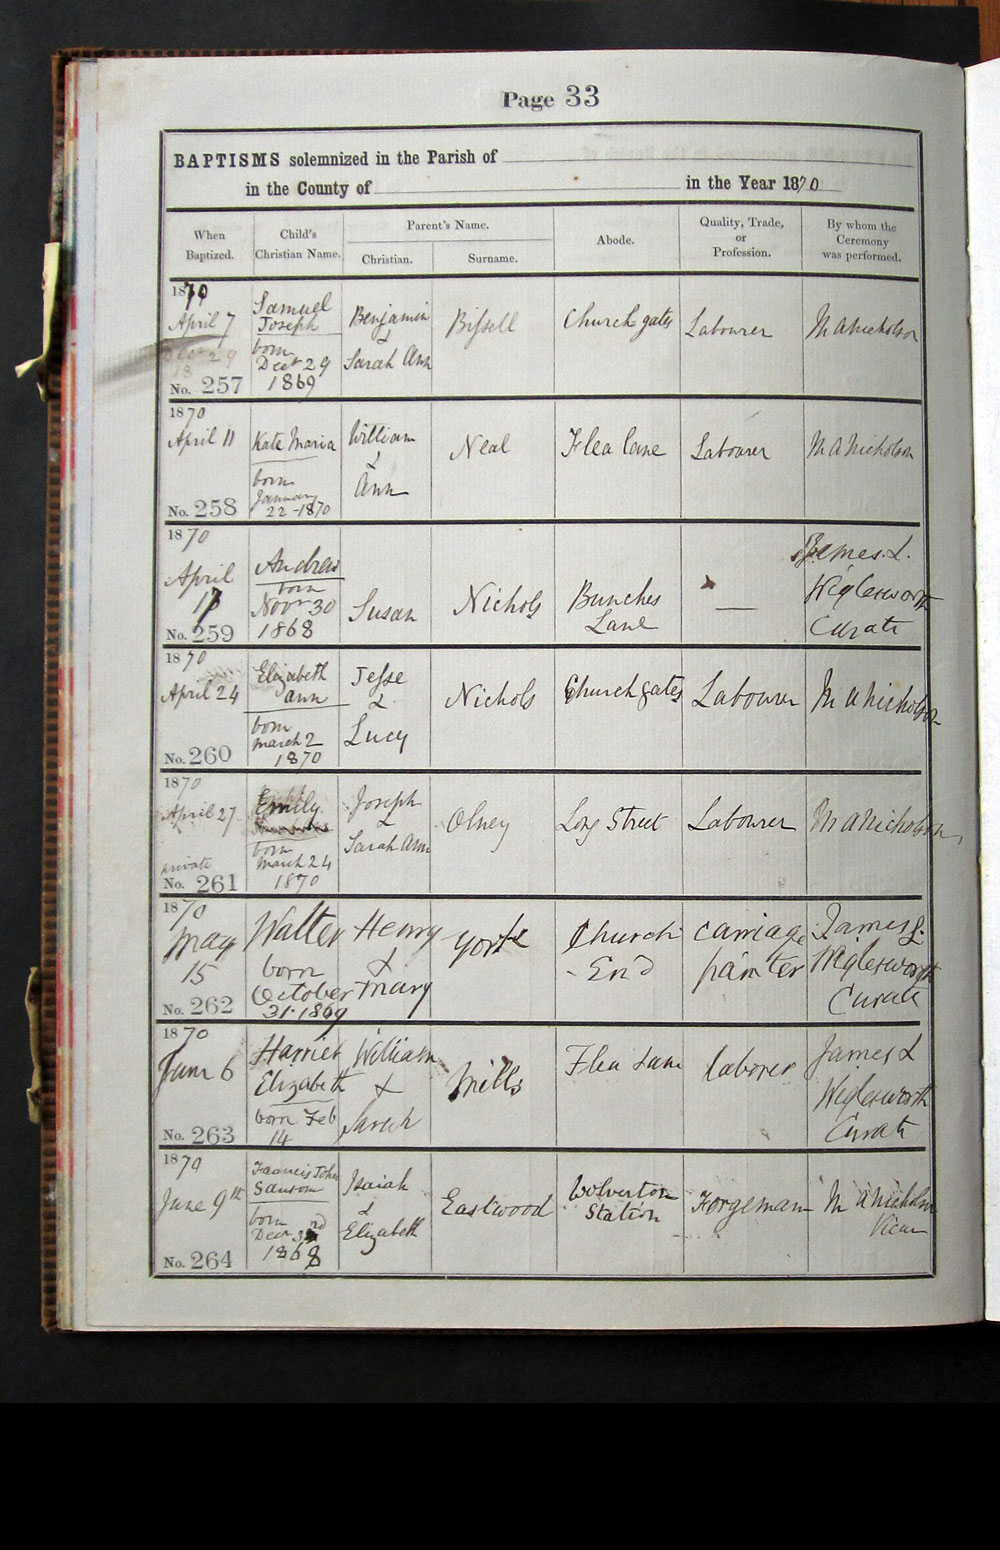 Page 33
BAPTISMS solemnized in the Parish of
in the County of in the Year 1870
When Baptized.
Child's Christian Name.
Parent's Name.
Christian.
Surname.
Abode.
Quality, Trade, or Profession.
By whom the Ceremony was performed.
1870
April 7
Dec 29
18
No. 257
Samuel
Joseph
born
Decr 29
1869
Benjamin
&
Sarah Ann
Bissell
Church gates
Labourer
M A Nicholson
1870
April 11
No. 258
Kate Maria
born
January
22-1870
William
&
Ann
Neal
Flea lane
Labourer
M A Nicholson
1870
April
17
No. 259
Andrew
born
Novr 30
1868
Susan
Nichols
Bunches
Lane
—
James L.
Wiglesworth
Curate
1870
April 24
No. 260
Elizabeth
ann
born
march 2
1870
Jesse
&
Lucy
Nichols
Church gates
Labourer
M A Nicholson
1870
April 27
private
No. 261
Emily
born
March 24
1870
Joseph
&
Sarah Ann
Olney
Long Street
Labourer
M A Nicholson
1870
May
15
No. 262
Walter
born
October
31. 1869
Henry
&
Mary
York
Church
End
Carriage
painter
James L.
Wiglesworth
Curate
1870
June 6
No. 263
Harriet
Elizabeth
born Feb
14
William
&
Sarah
Mills
Flea Lane
laborer
James L
Wiglesworth
Curate
1870
June 9th
No. 264
Francis John
Sansom
born
Decr 3rd
1868
Isaiah
&
Elizabeth
Eastwood
Wolverton
Station
Forgeman
M A Nicholson
Vicar